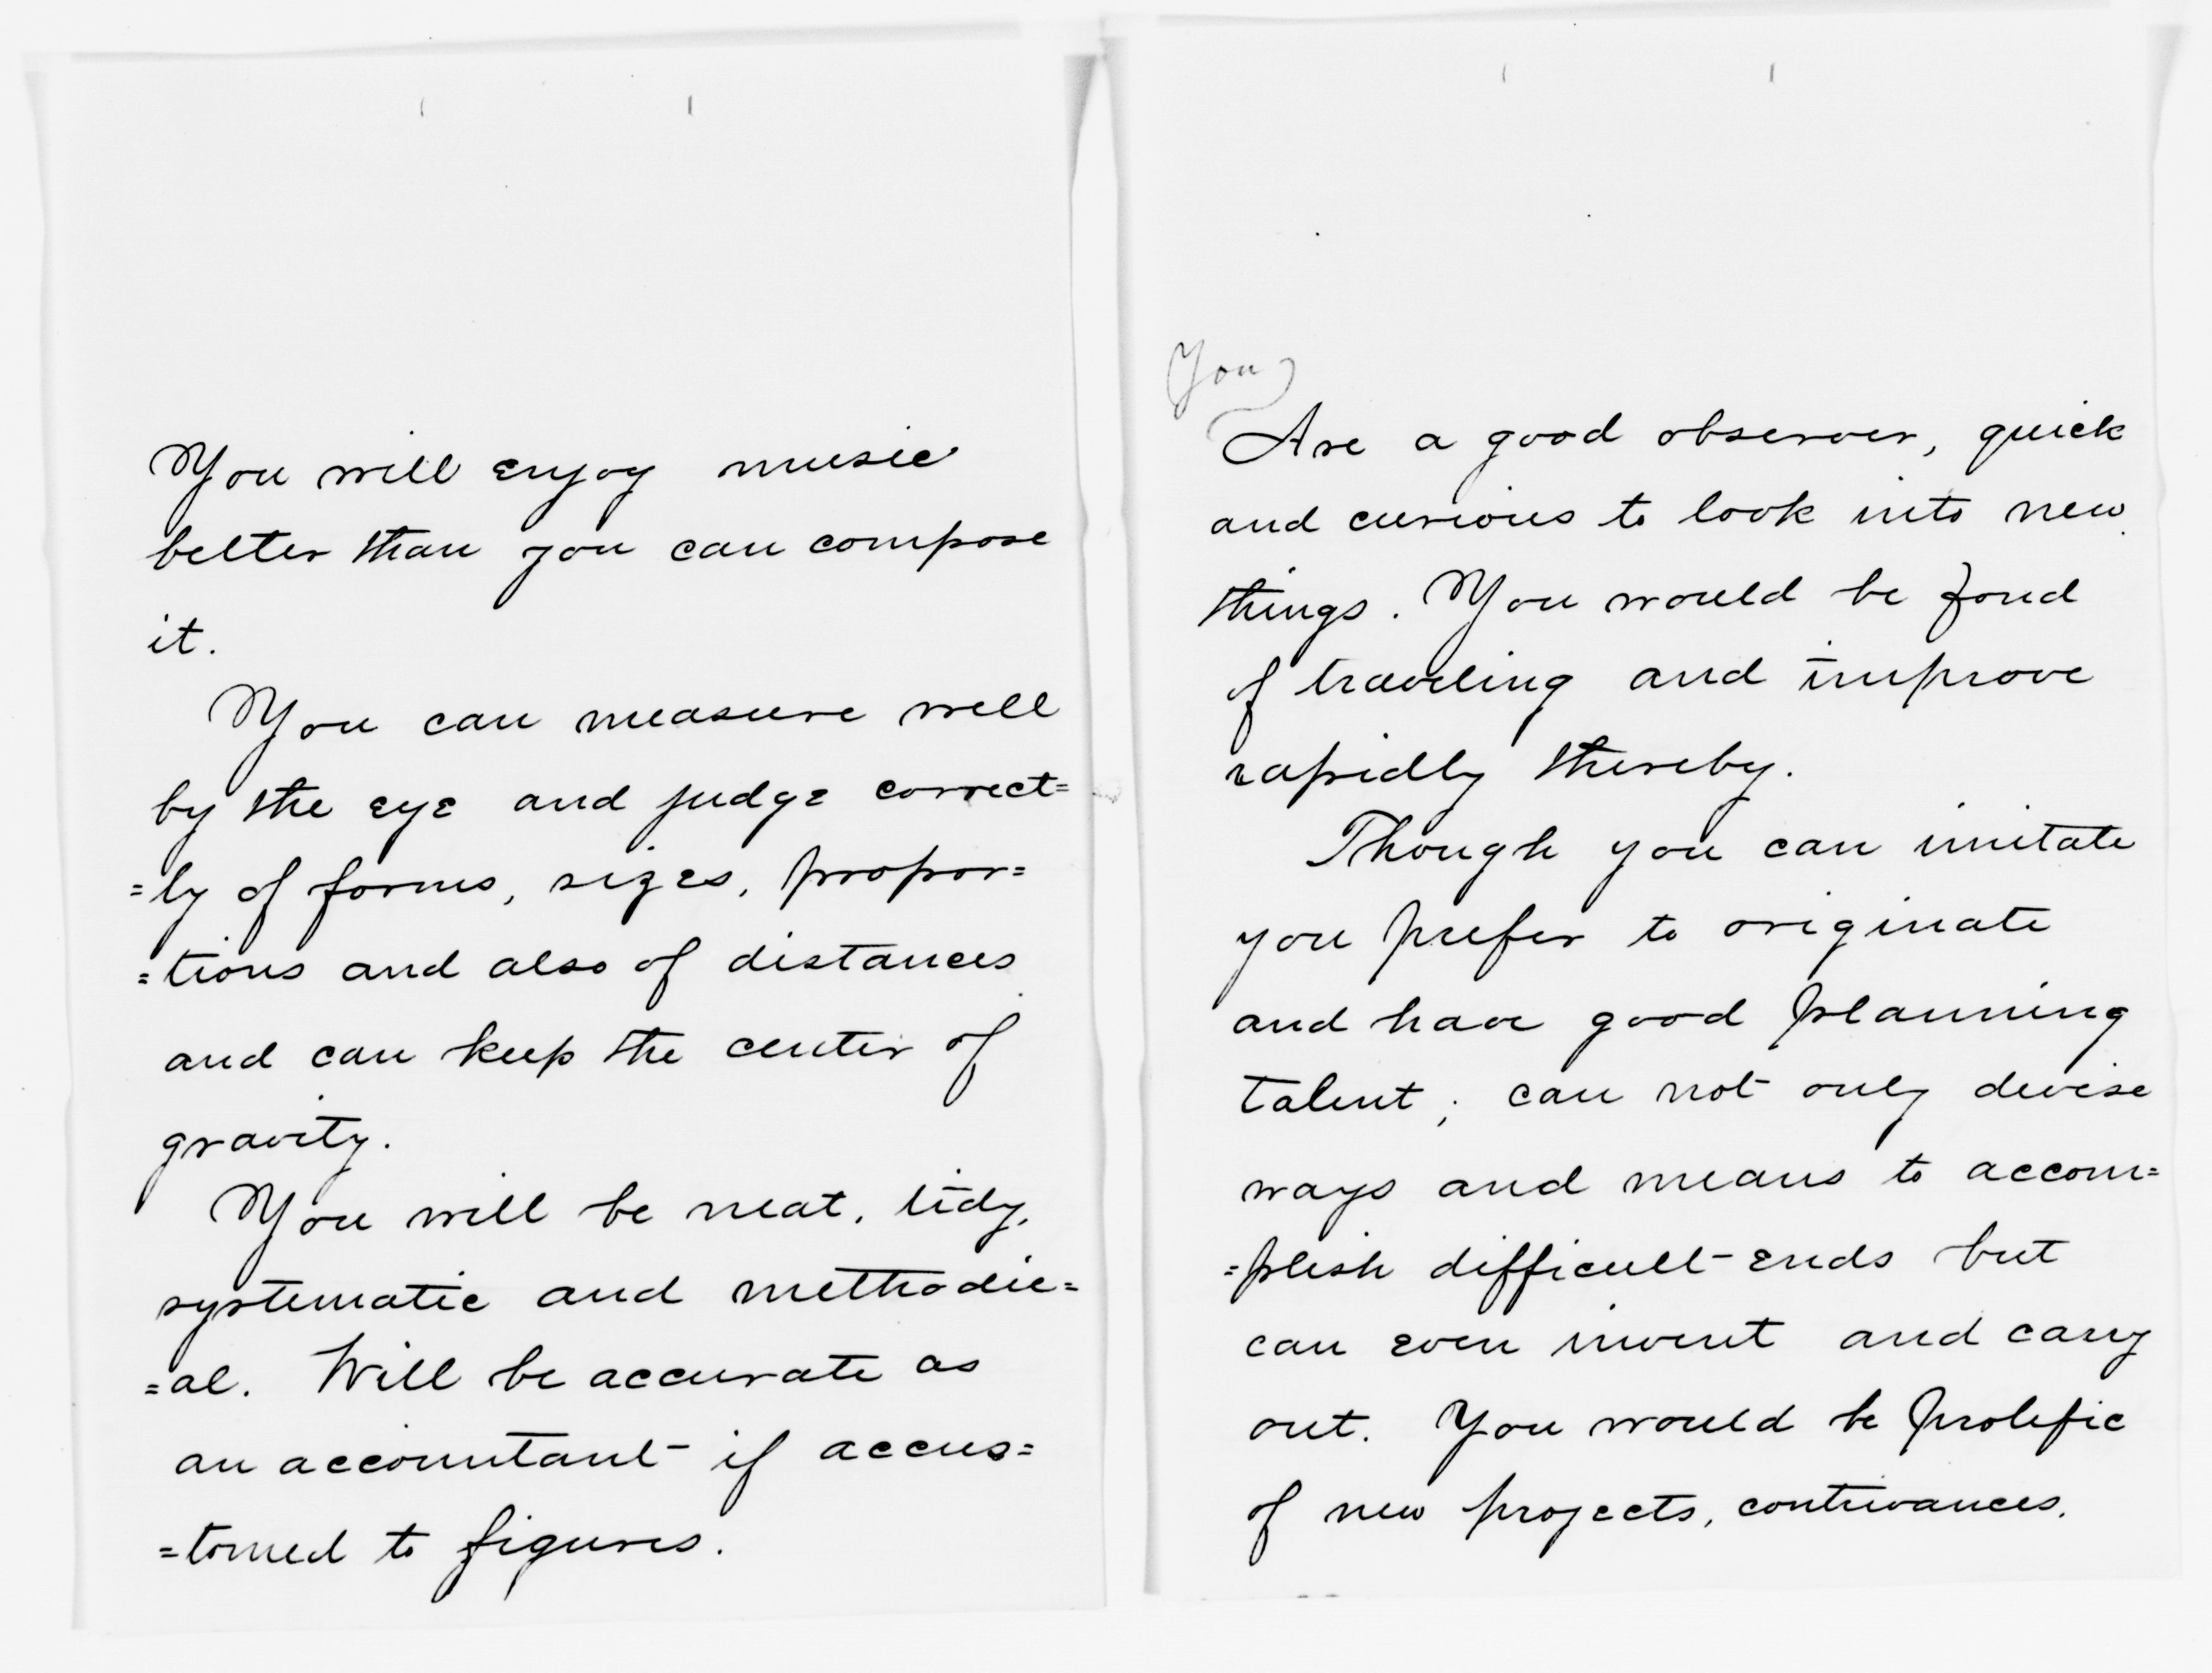 You will enjoy music
better than you can compose
it.
You can measure well
by the eye and judge correct=
=ly of forms, sizes, propor=
=tions and also of distances
and can keep the center of
gravity.
You will be neat, tidy,
systematic and methodic=
=al. Will be accurate as
an accountant if accus=
=tomed to figures.
(You)
Are a good observer, quick
and curious to look into new
things. You would be fond
of traveling and improve
rapidly thereby.
Though you can imitate
you prefer to originate
and have good planning
talent; can not only devise
ways and means to accom=
=plish difficult ends but
can even invent and carry
out. You would be prolific
of new projects, contrivances,